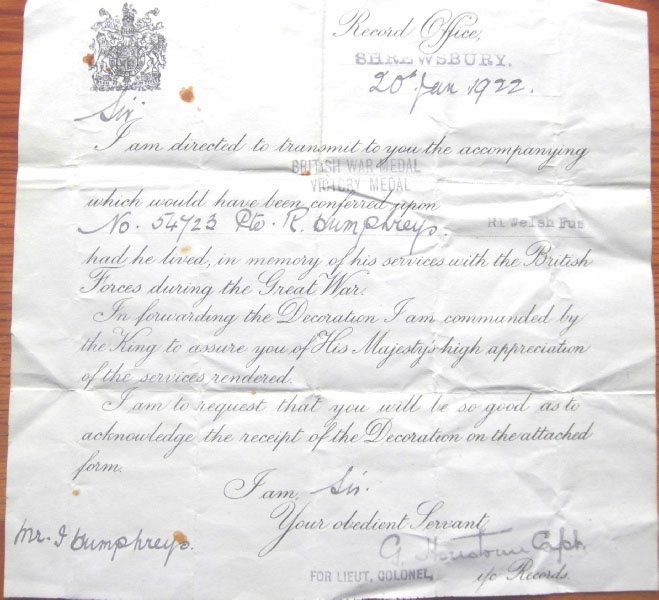 Record Office,
SHREWSBURY.
20th Jan 1922.
Sir,
I am directed to transmit to you the accompanying
BRITISH WAR MEDAL
VICTORY MEDAL
which would have been conferred upon
No. 54723 Pte. R. Humphreys. Rl Welsh Fus
had he lived, in memory of his services with the British
Forces during the Great War.
In forwarding the Decoration I am commanded by
the King to assure you of His Majesty's high appreciation
of the services rendered.
I am to request that you will be so good as to
acknowledge the receipt of the Decoration on the attached
form.
I am, Sir.
Your obedient Servant,
G. Capt.
FOR LIEUT. COLONEL, i/c Records.
Mr. J Humphreys.